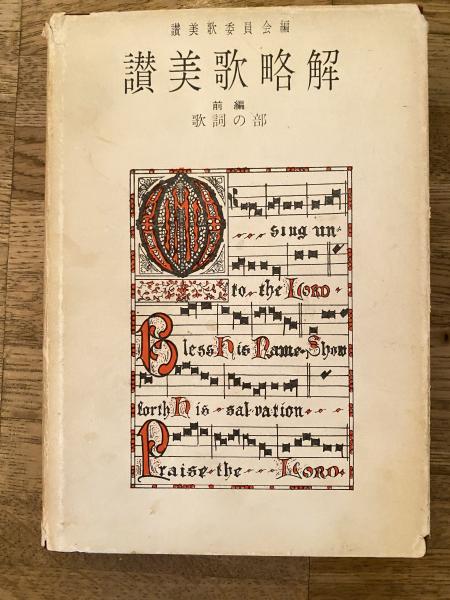 讃美歌委員会編
讃美歌略解
前編
歌詞の部
O
sing un-
to the LORD
Bless His Name, Show
forth His salvation
Praise the LORD